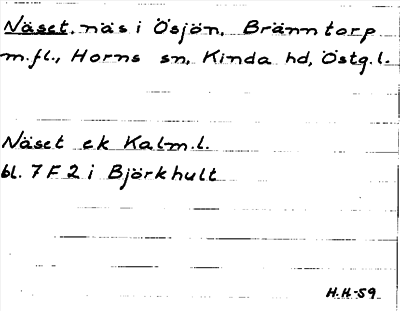 Näset, näs i Ösjön, Bränntorp
m.fl., Horns sn, Kinda hd, Östg.l.
Näset ek Kalm.l.
bl. 7 F 2 i Björkhult
H.H-59